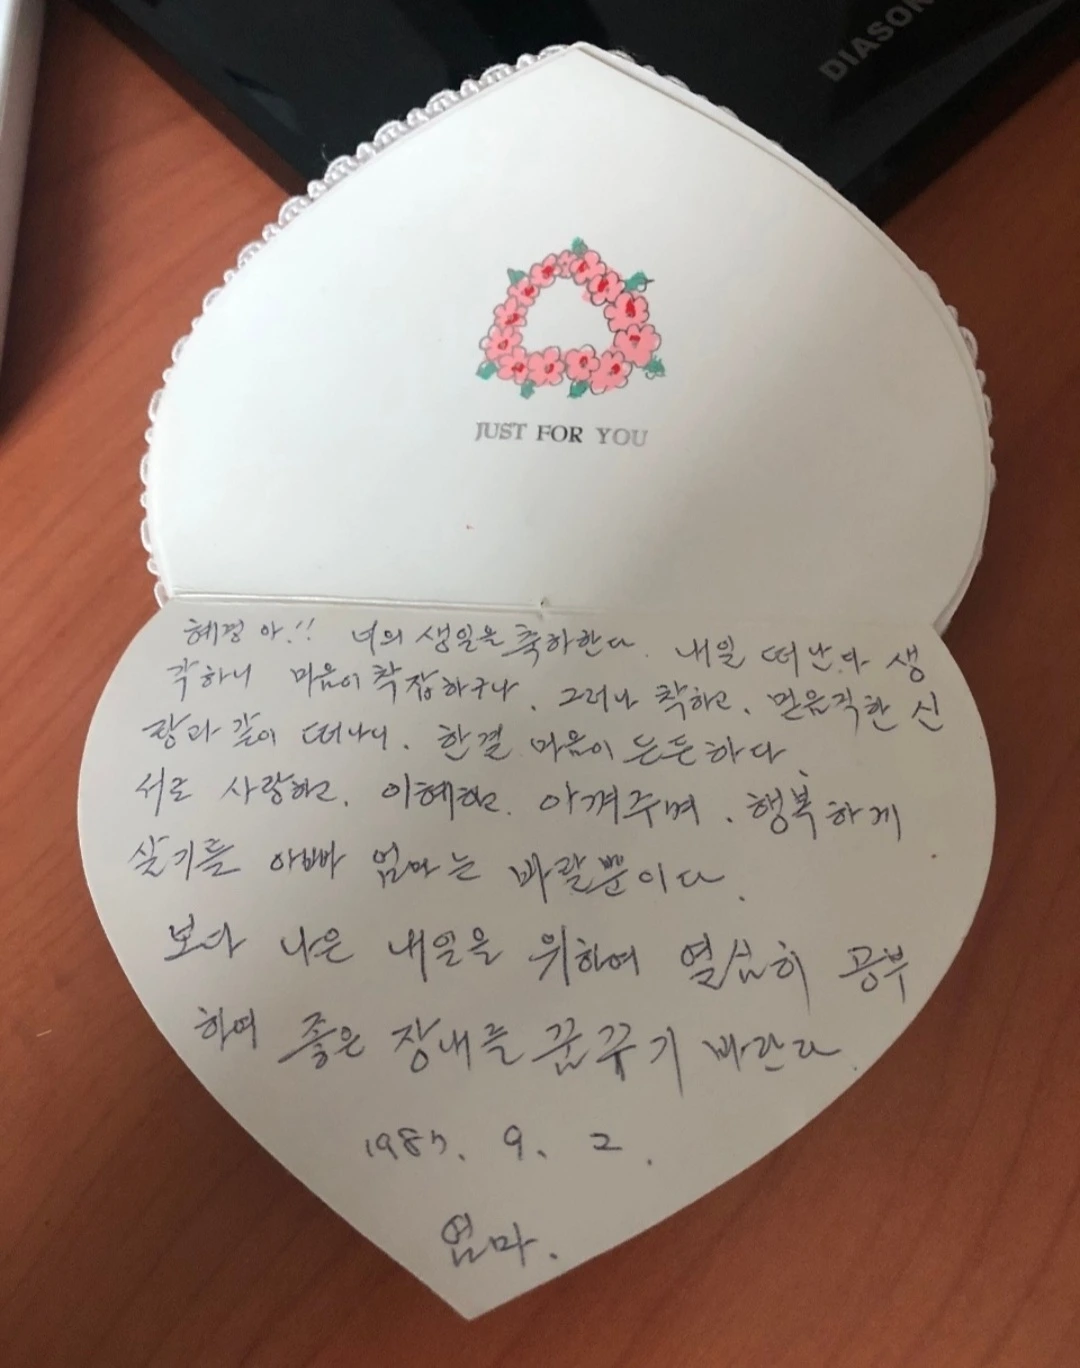 DIASON
JUST FOR YOU
혜경 아!! 너의 생일을 축하한다. 내일 떠난다 생
각하니 마음이 착잡하구나. 그러나 착하고, 믿음직한 신
랑과 같이 떠나니, 한결 마음이 든든하다.
서로 사랑하고, 이혜하고, 아껴주며, 행복하게
살기를 아빠 엄마는 바랄뿐이다.
보다 나은 내일을 위하여 열심히 공부
하여 좋은 장내를 꿈꾸기 바란다.
1987. 9. 2.
엄마.